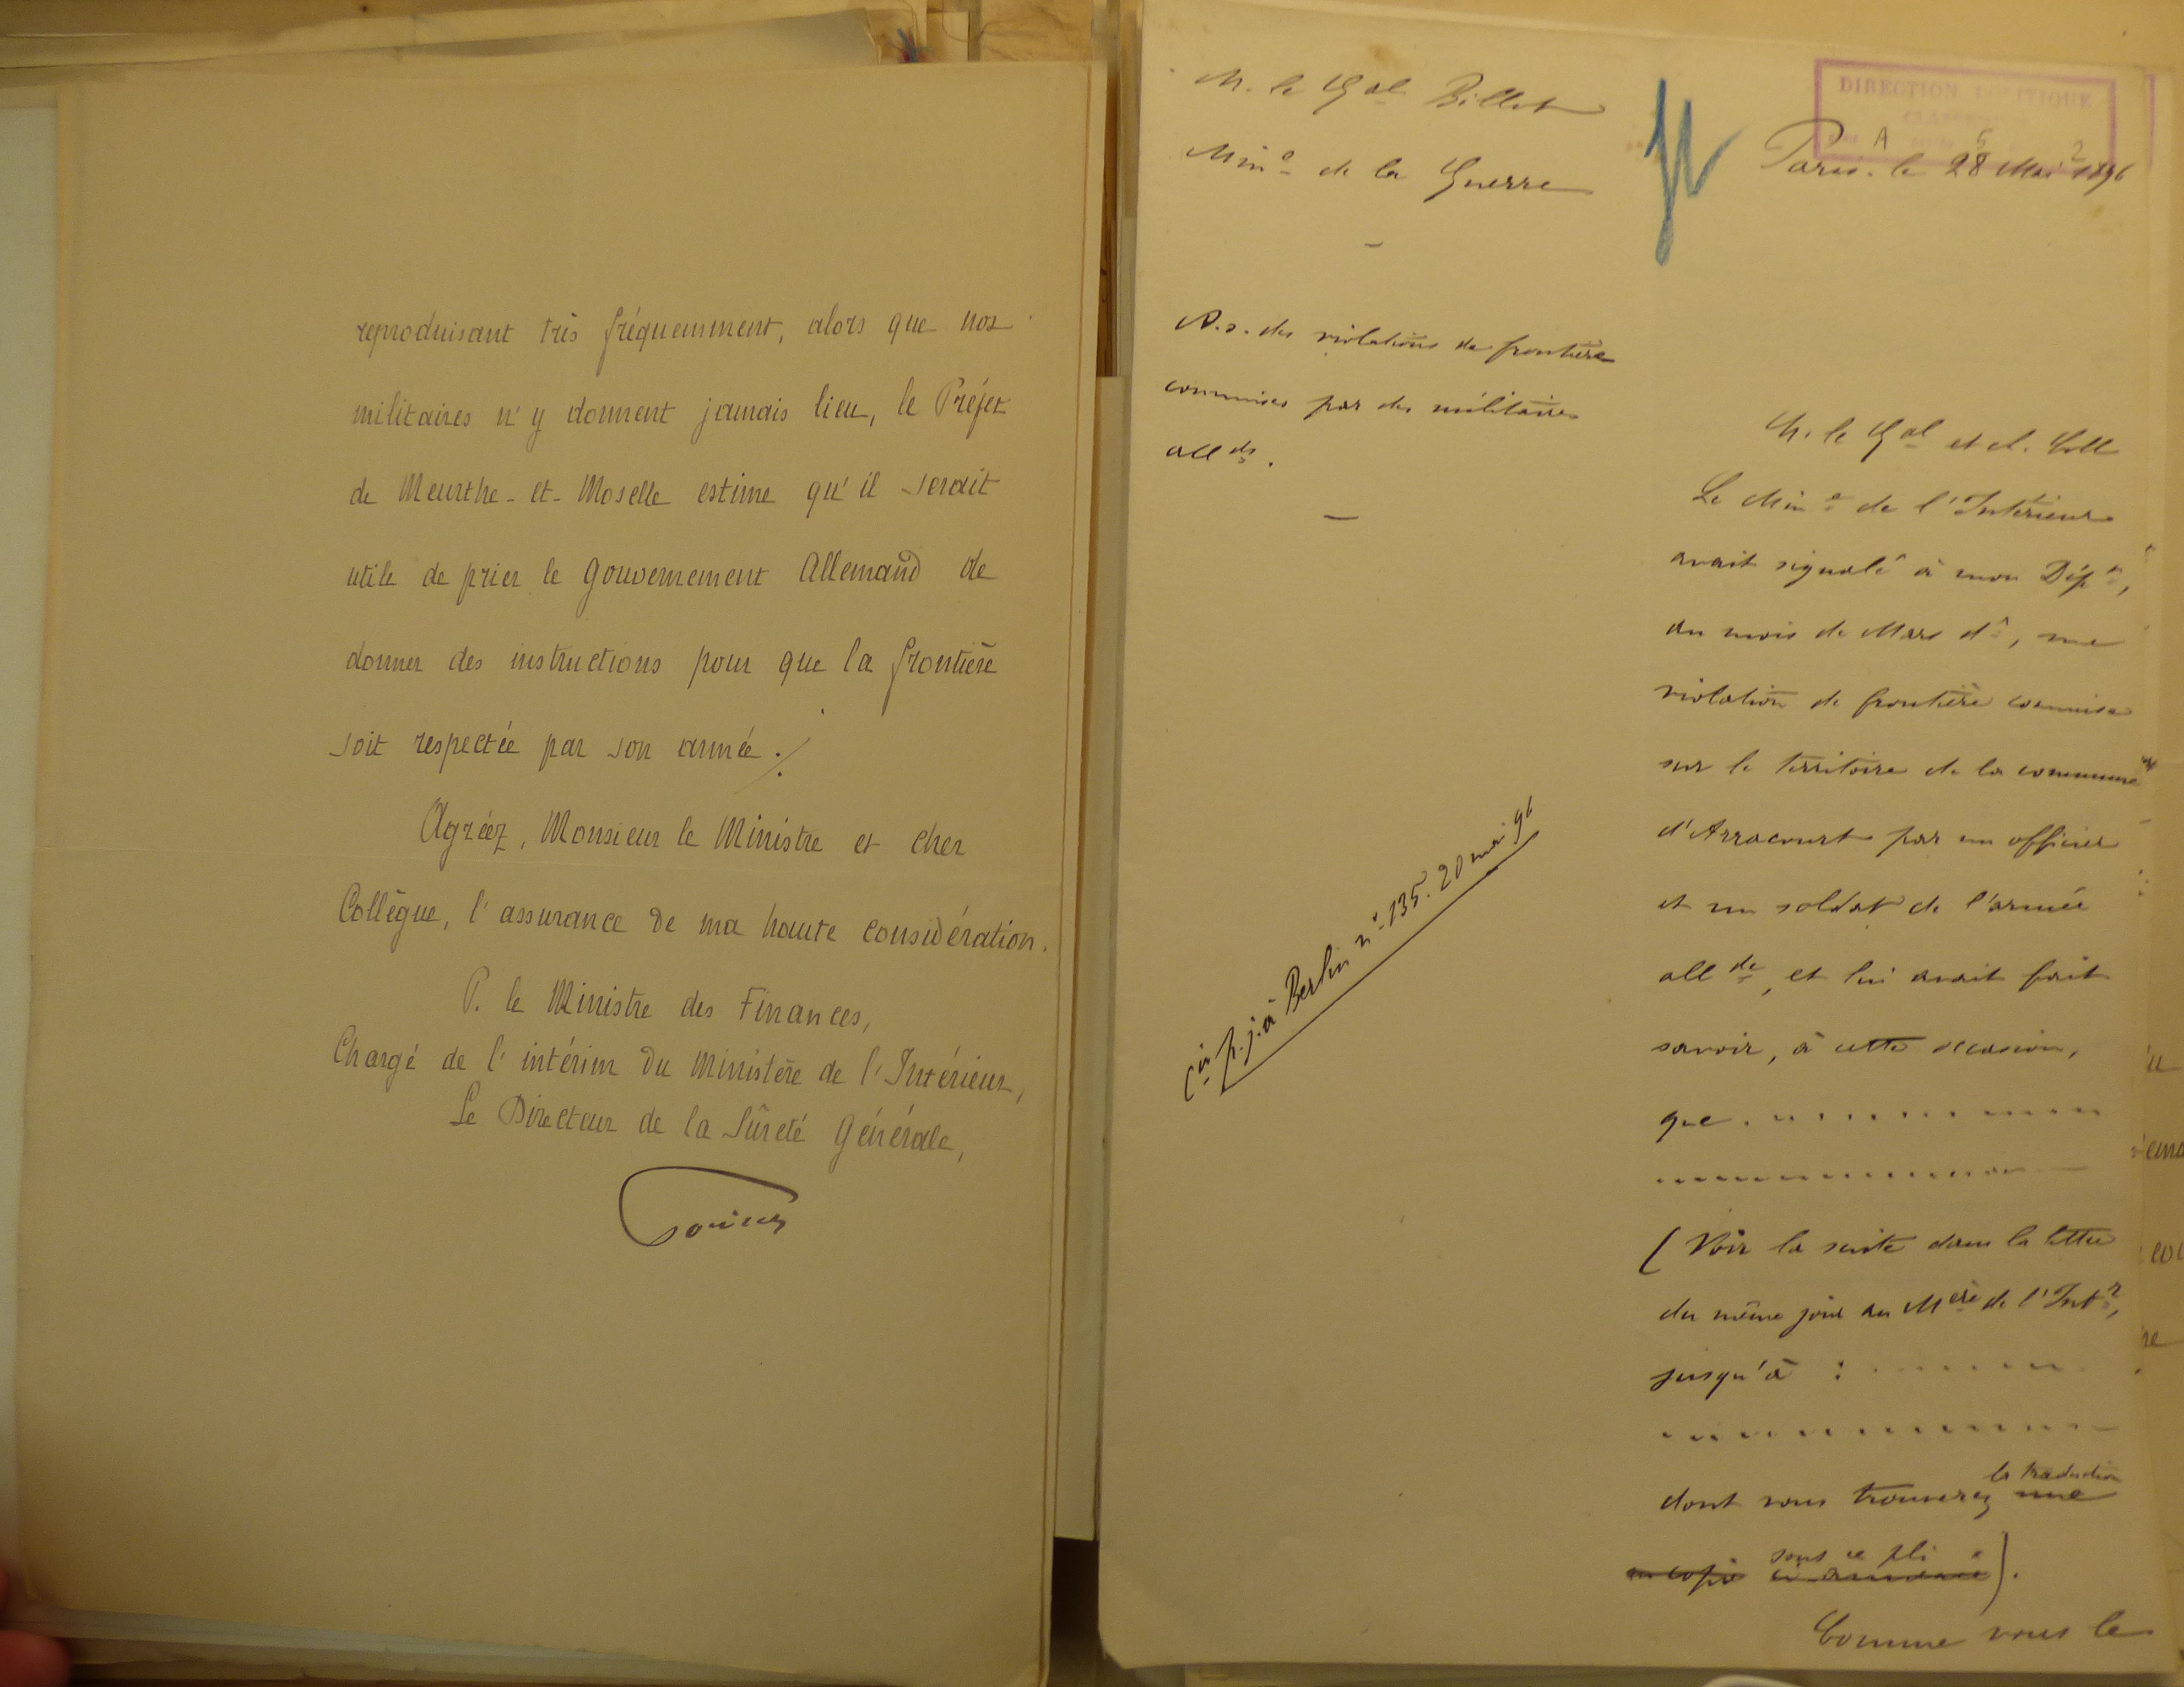 reproduisant très fréquemment, alors que nos
militaires n'y donnent jamais lieu, le Préfet
de Meurthe-et-Moselle estime qu'il serait
utile de prier le Gouvernement Allemand de
donner des instructions pour que la frontière
soit respectée par son armée ./.
Agréez, Monsieur le Ministre et cher
Collègue, l'assurance de ma haute considération.
P. le Ministre des Finances,
Chargé de l'intérim du Ministère de l'Intérieur,
Le Directeur de la Sûreté Générale,
M. le Gal Billot
Mine de la Guerre
DIRECTION POLITIQUE
A 5 2
Paris. le 28 Mai 1896
A.s. des violations de frontière
commises par des militaires
allds.
Cer p. j. à Berlin no 135. 20 mai 96
M. le Gal et ch. Coll
Le Mine de l'Intérieur
avait signalé à mon Dépt,
au mois de Mars dr, une
violation de frontière commise
sur le territoire de la commune
d'Arracourt par un officier
et un soldat de l'armée
allde, et lui avait fait
savoir, à cette occasion,
que . . . . . . . . . . .
. . . . . . . . . . . . . .
(Voir la suite dans la lettre
du même jour au Mère de l'Intr,
jusqu'à : . . . . . . .
. . . . . . . . . . . . . .
la traduction
dont vous trouverez une
sous ce pli
copie ).
Comme vous le